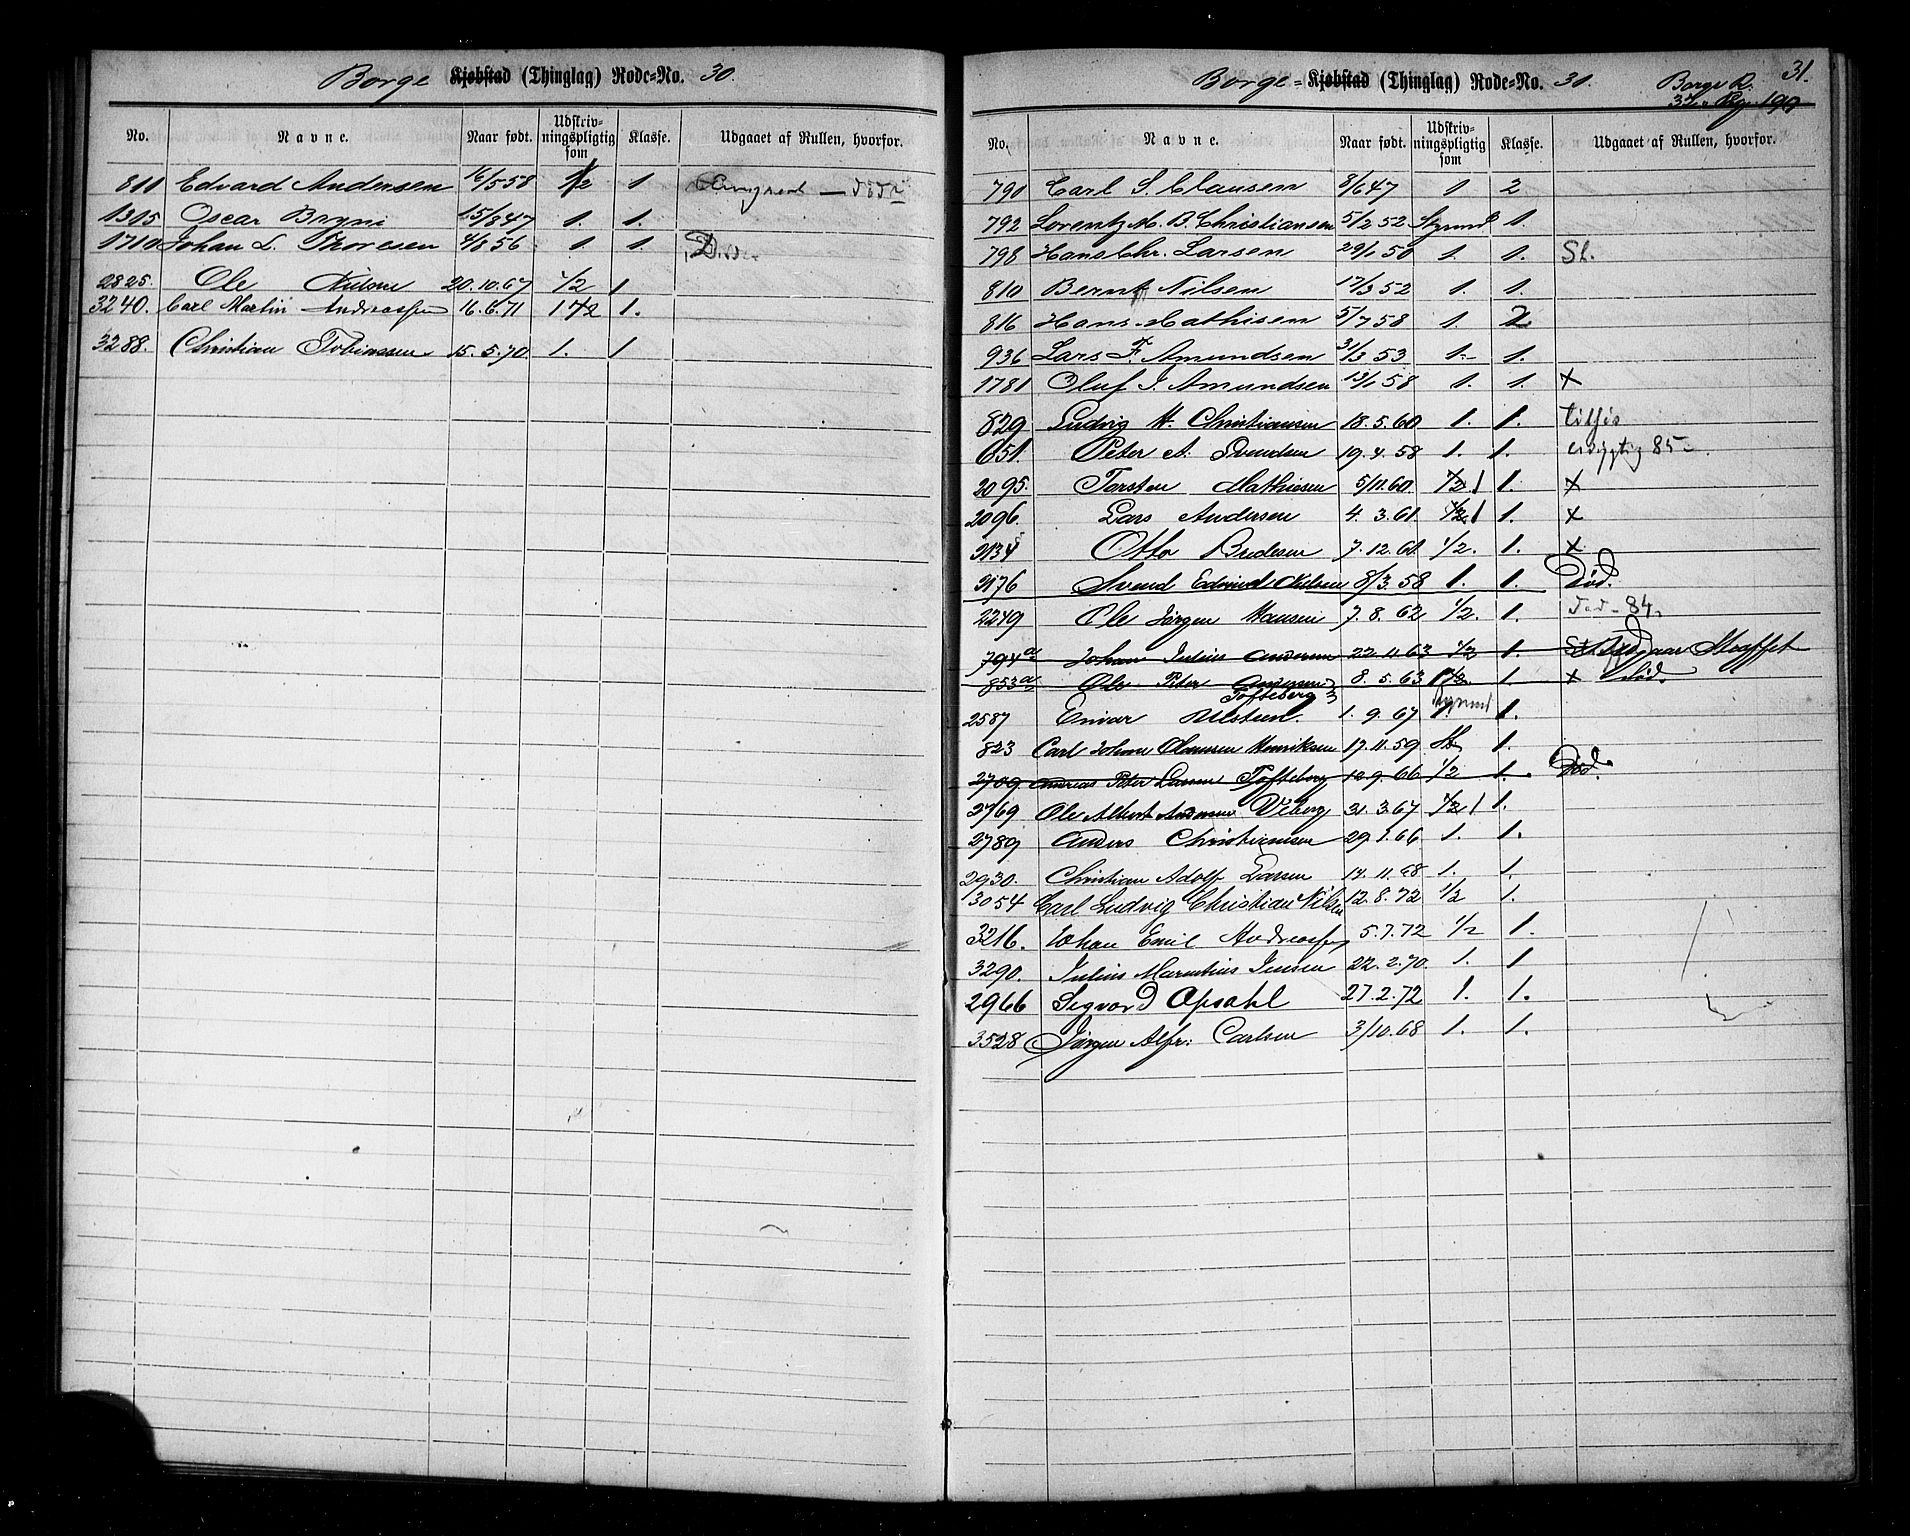 Borge Kjøbstad (Thinglag) Rode-No. 30.
No. Navne. Naar født. Udskrivningspligtig som Klasse. Udgaaet af Rullen, hvorfor.
811 Edvard Andersen 16/5 58 1/2 1
1315 Oscar Bryni 15/8 47 1. 1.
1710 Johan L. Thoresen 4/8 56 1 1.
2825. Ole Nielsen 20.10.67 1/2 1
3240. Carl Martin Andreassen 16.6.71 1 1/2 1.
3288. Christian Tobiassen 15.5.70 1. 1
31.
Borge Kjøbstad (Thinglag) Rode-No. 31. Borge R.
No. Navne. Naar født. Udskrivningspligtig som Klasse. Udgaaet af Rullen, hvorfor.
790 Carl S. Clausen 8/6 47 1 2
792 Lorentz M. B. Christiansen 5/2 52 Styrmd 1.
798 Hans Chr. Larsen 29/1 50 1. 1. Sl.
810 Bernt Nilsen 17/3 52 1. 1.
816 Hans Mathisen 5/7 58 1. 2
936 Lars F. Amundsen 31/3 53 1. 1.
1781 Oluf J. Amundsen 13/1 58 1. 1. X
829 Ludvig H. Christiansen 18.5.60 1. 1. tilljs
651. Peter A. Svendsen 19.4.58 1. 1. udygtig 85
2095. Torsten Mathiesen 5/11.60. 1/2 1 1. X
2096. Lars Andersen 4.3.61. 1/2 1 1. X
2134 Otto Andersen 7.12.61 1/2. 1. X
2176 Svend Edvind Nielsen 8/3.58 1. 1. Død.
2249 Ole Jørgen Hansen 7.8.62 1/2. 1. død - 84
794a Johan Julius Andersen 22.11.63 1/2 1.
853a Ole Peter Andersen 8.5.63 1/2 1. X Død.
Tofteberg
2587 Einar Ulsteen. 1.9.67 1. 1.
823 Carl Johan Clausen Henriksen 17.11.59 St 1.
2709. Andreas Peter Larsen Tofteberg 12.9.66 1/2 1. Død.
2769 Ole Albert Andersen Viberg 31.3.67 1/2 1 1.
2789 Anders Christiansen 29.1.66 1. 1.
2930. Christian Adolf Larsen 14.11.68 1. 1.
3054 Carl Ludvig Christian Nilsen 12.8.72 1/2 1.
3216. Johan Emil Andreassen 5.7.72 1/2 1.
3290. Julius Marentius Jensen 22.2.70. 1. 1
2966 Sigvard Opsahl 27.2.72 1. 1.
3528 Jørgen Alfr: Carlsen 3/10.68 1. 1.